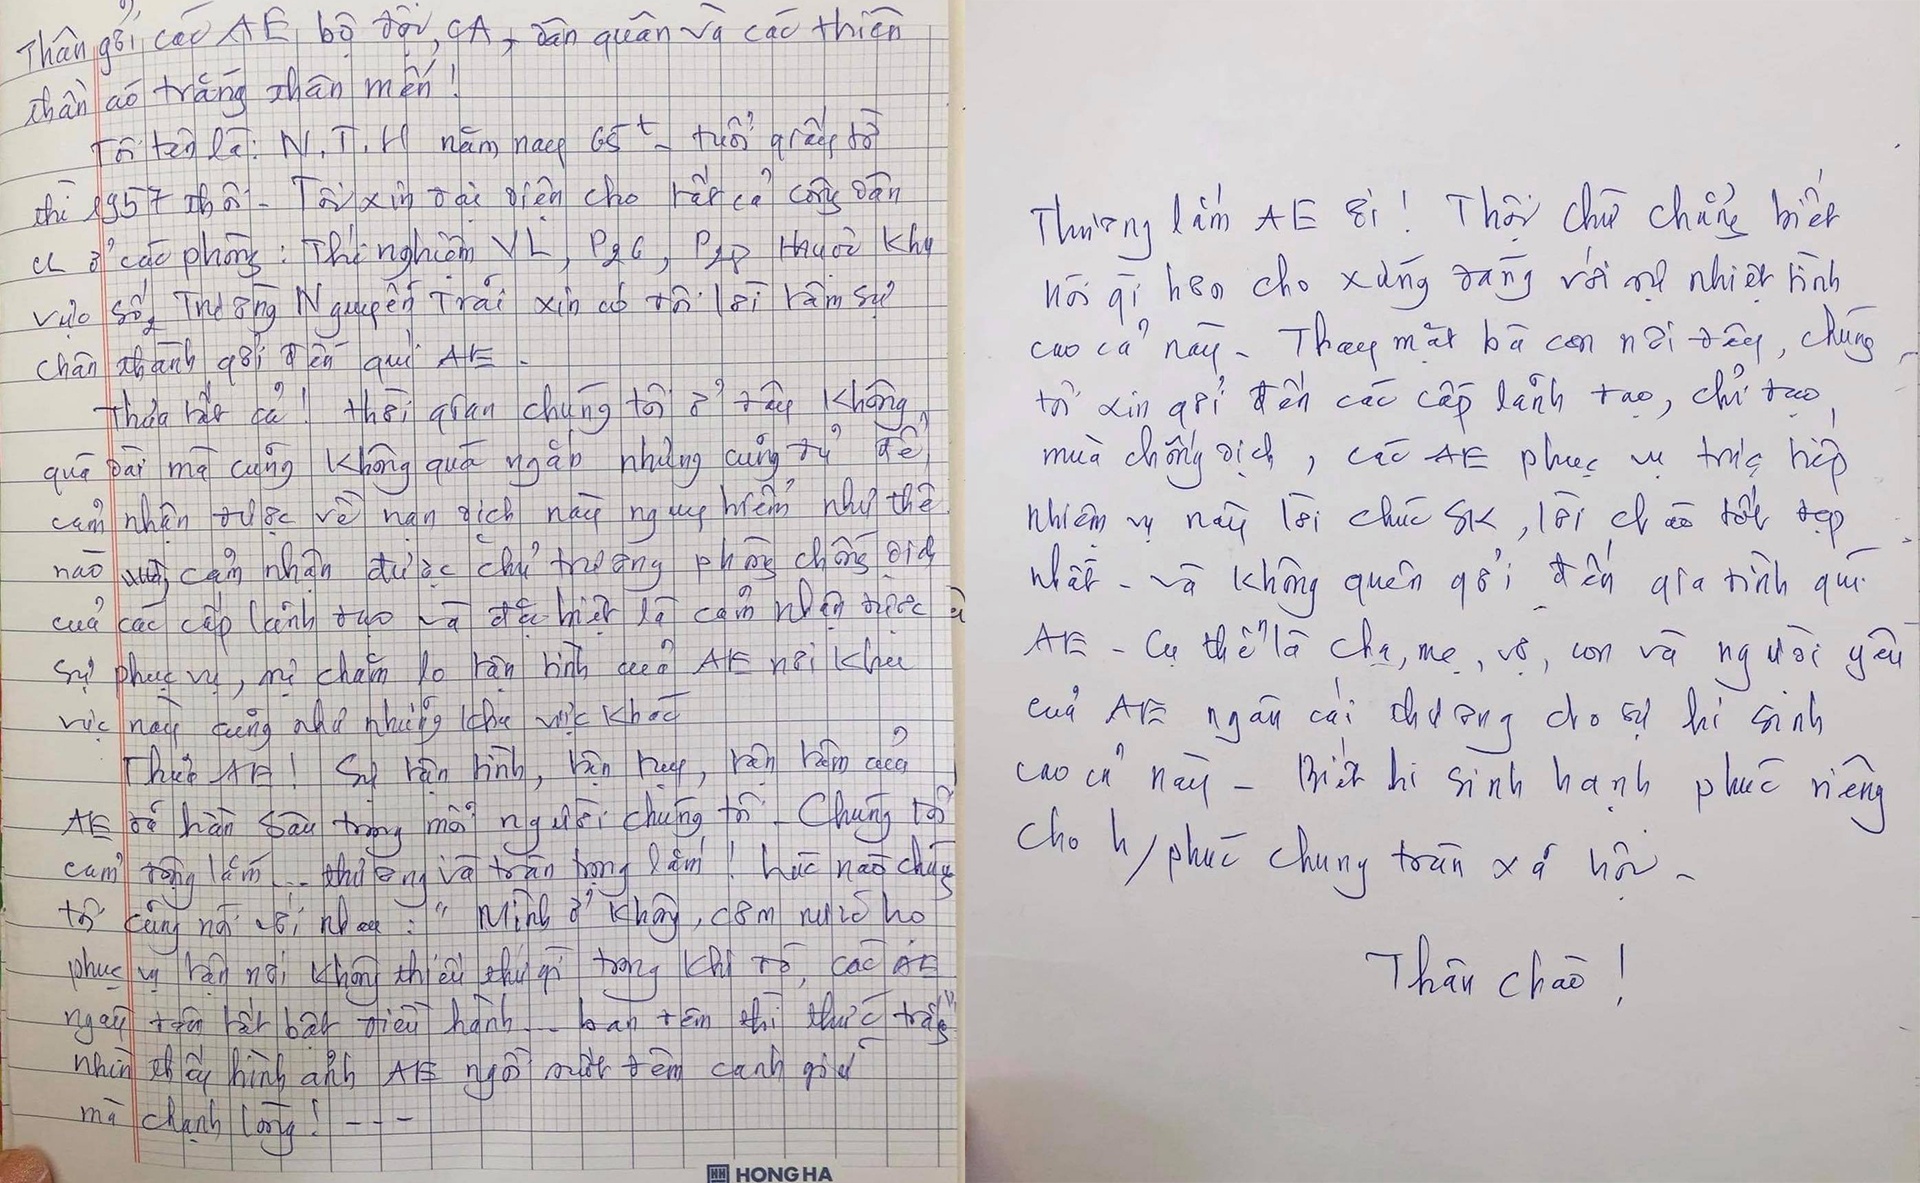 Thân gởi các AE bộ đội, CA, dân quân và các thiên
thần áo trắng thân mến!
Tôi tên là: N.T.H năm nay 65t - tuổi giấy tờ
thì 1957 thôi - Tôi xin đại diện cho tất cả công dân
CL ở các phòng: Thí nghiệm VL, P26, P2P thuộc khu
vực số 2 Trường Nguyễn Trãi xin có đôi lời tâm sự
chân thành gởi đến quí AE.
Thưa tất cả! thời gian chúng tôi ở đây không
quá dài mà cũng không quá ngắn nhưng cũng đủ để
cảm nhận được về nạn dịch này nguy hiểm như thế
nào cảm nhận được chủ trương phòng chống dịch
của các cấp lãnh đạo và đặc biệt là cảm nhận được
sự phục vụ, chăm lo tận tình của AE nơi khu
vực này cũng như những khu vực khác
Thưa AE! Sự tận tình, tận tụy, tận tâm của
AE đã hằn sâu trong mỗi người chúng tôi - Chúng tôi
cảm động lắm... thương và trân trọng lắm! lúc nào chúng
tôi cũng nói với nhau: "Mình ở không, cơm nước họ
phục vụ tận nơi không thiếu thứ gì trong khi đó, các AE
ngày đêm tất bật điều hành - ban đêm thì thức trắng"
nhìn thấy hình ảnh AE ngồi suốt đêm canh giữ
mà chạnh lòng! - - -
HH HONG HA
Thương lắm AE ơi! Thôi chứ chẳng biết
nói gì hơn cho xứng đáng với sự nhiệt tình
cao cả này - Thay mặt bà con nơi đây, chúng
tôi xin gởi đến các cấp lãnh đạo, chỉ đạo
mùa chống dịch, các AE phục vụ trực tiếp
nhiệm vụ này lời chúc SK, lời chào tốt đẹp
nhất - và không quên gởi đến gia đình quí
AE - Cụ thể là cha, mẹ, vợ, con và người yêu
của AE ngàn cái thương cho sự hi sinh
cao cả này - Biết hi sinh hạnh phúc riêng
cho h/phúc chung toàn xã hội -
Thân chào!